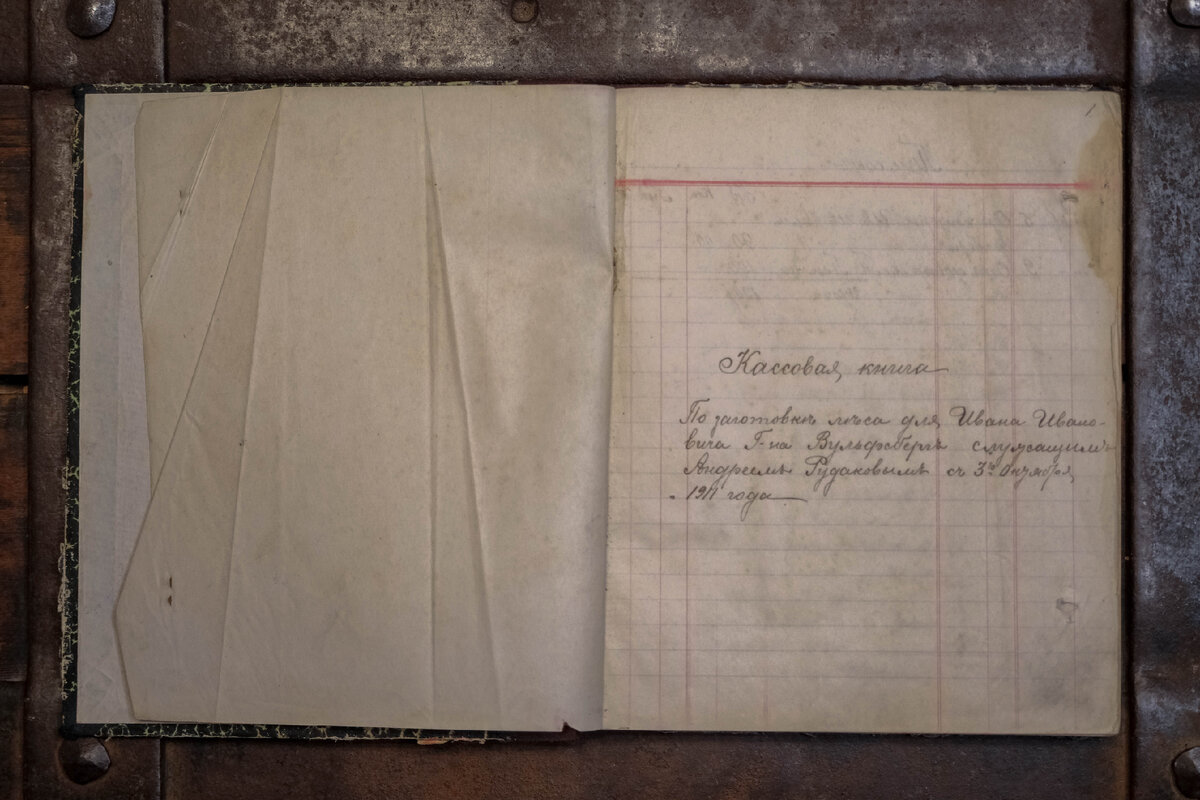 Кассовая книга
По заготовкѣ лѣса для Ивана Ивано-
вича Г-на Вульфсбергъ служащимъ
Андреемъ Рудаковымъ съ 3го Октября
1911 года